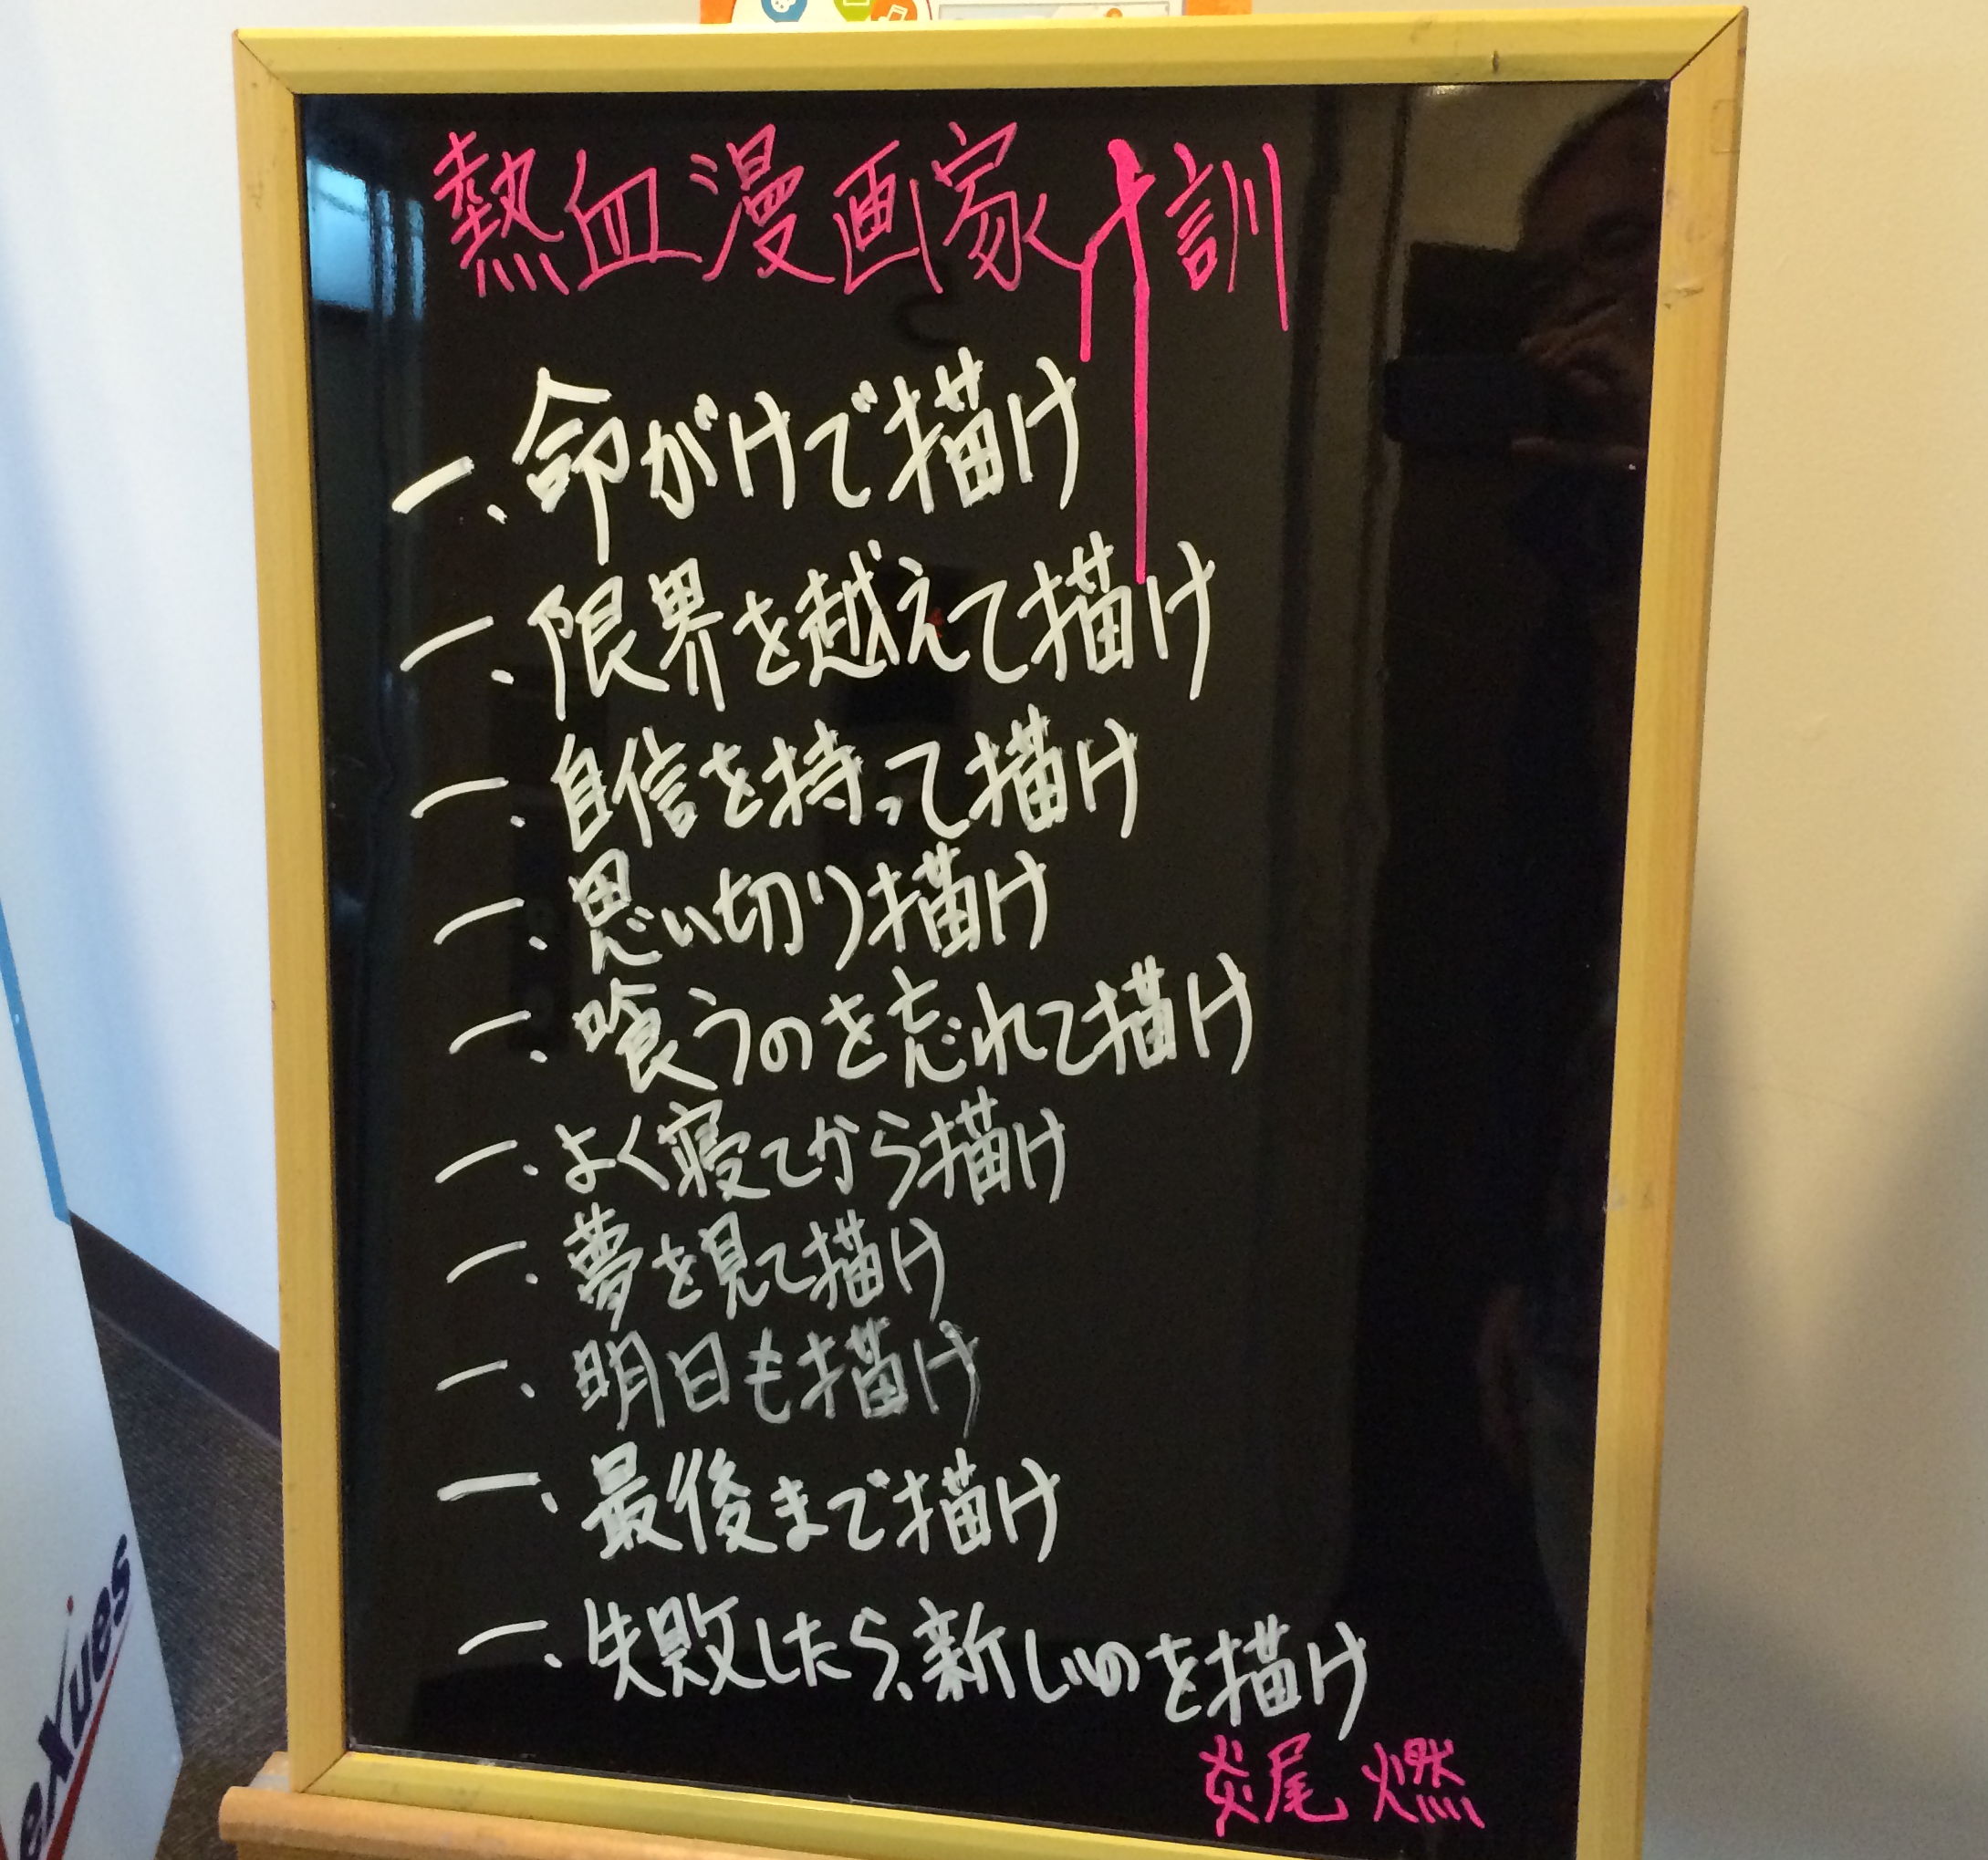 熱血漫画家十訓
一、命がけで描け
一、限界を越えて描け
一、自信を持って描け
一、思い切り描け
一、喰うのを忘れて描け
一、よく寝てから描け
一、夢を見て描け
一、明日も描け
一、最後まで描け
一、失敗したら、新しいのを描け
炎尾 燃
eXues